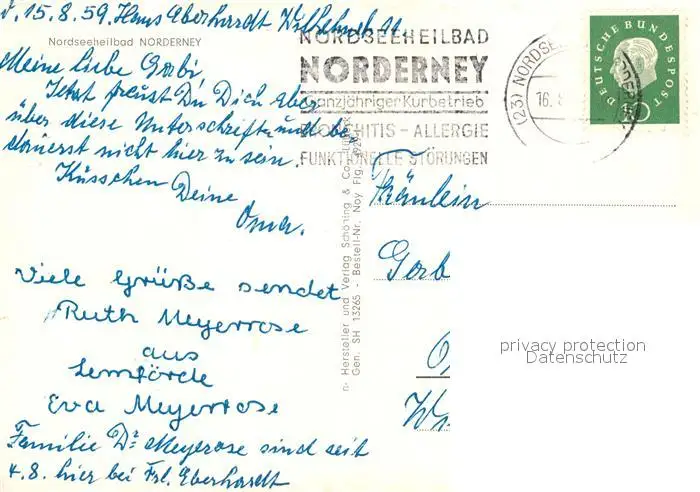 d. 15.8.59. Hans Eberhardt Wilhelmstr. 11.
Nordseeheilbad NORDERNEY
Meine liebe Gabi,
Jetzt freust Du Dich
über diese Unterschriften und be-
dauerst nicht hier zu sein.
Küsschen Deine
Oma.
Viele Grüße sendet
Ruth Meyerrose
aus
Lemförde
Eva Meyerrose
Familie Dr. Meyerose sind seit
4.8. hier bei Frl. Eberhardt
Hersteller und Verlag Schöning & Co.
Gen. SH 13265 - Bestell-Nr. Noy Flg.
NORDSEEHEILBAD
NORDERNEY
ganzjähriger Kurbetrieb
- ALLERGIE
FUNKTIONELLE STÖRUNGEN
(23) NORDSE
16.
DEUTSCHE BUNDESPOST
10
Fräulein
Gab
privacy protection
Datenschutz